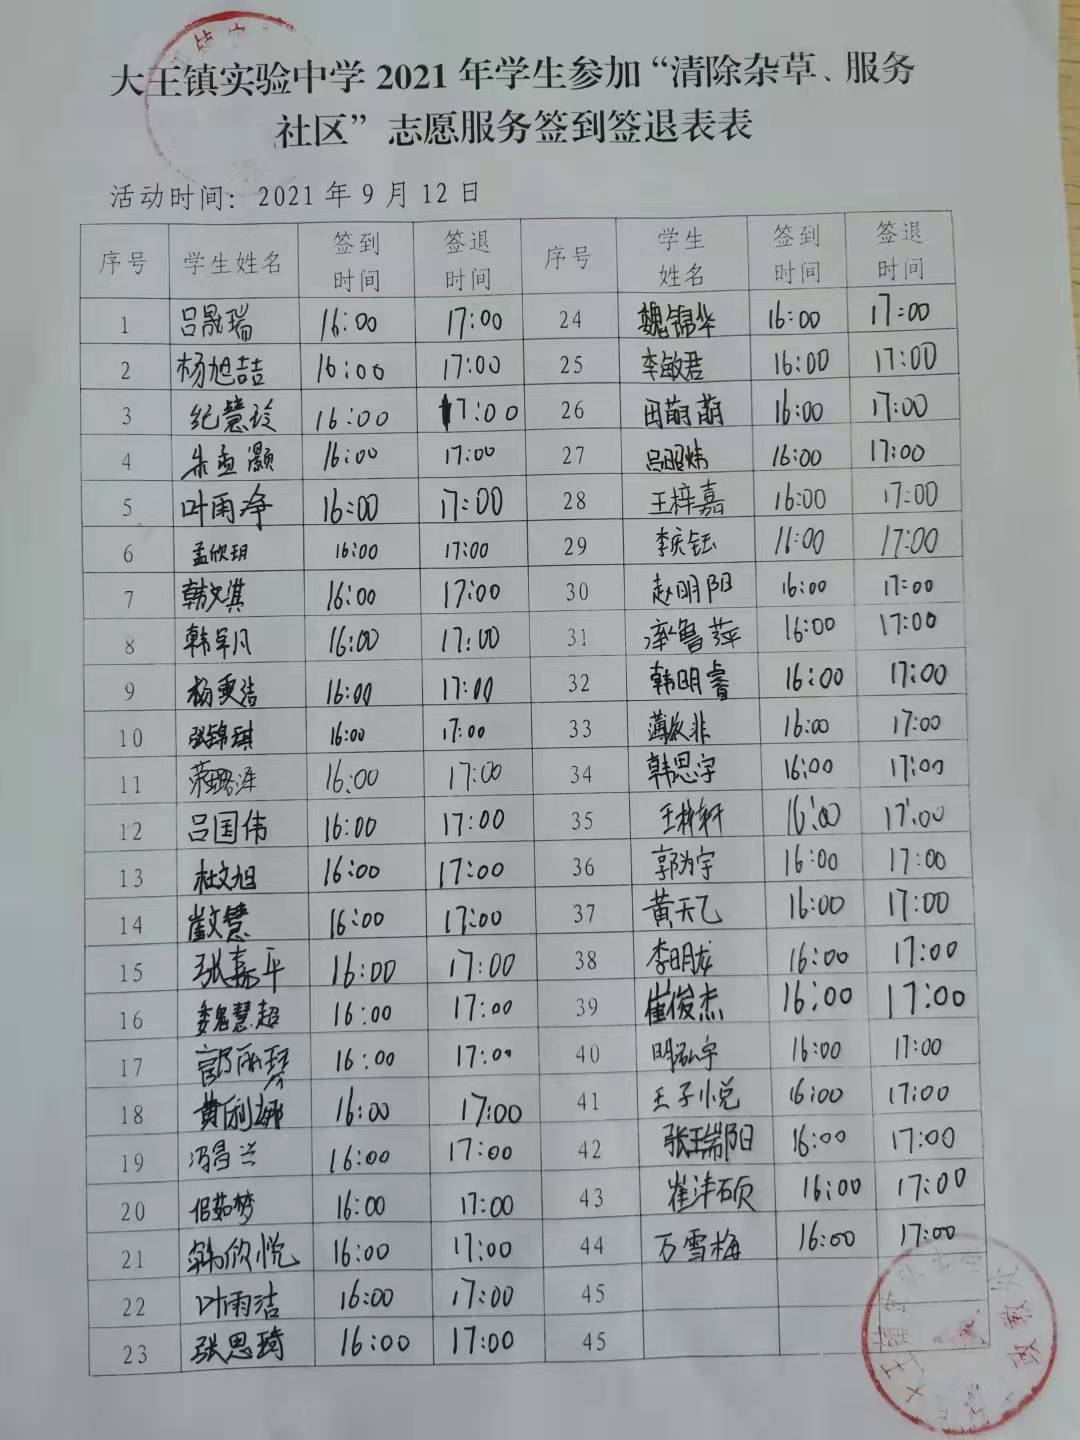 大王镇实验中学 2021 年学生参加“清除杂草、服务
社区”志愿服务签到签退表表
活动时间：2021 年 9 月 12 日
序号 学生姓名 签到时间 签退时间 序号 学生姓名 签到时间 签退时间
1 吕晟瑞 16:00 17:00 24 魏锦华 16:00 17:00
2 杨旭喆 16:00 17:00 25 李敏君 16:00 17:00
3 纪慧玲 16:00 17:00 26 田萌萌 16:00 17:00
4 朱孟灏 16:00 17:00 27 吕昭炜 16:00 17:00
5 叶雨净 16:00 17:00 28 王梓嘉 16:00 17:00
6 孟欣玥 16:00 17:00 29 李庆钰 16:00 17:00
7 韩文淇 16:00 17:00 30 赵明阳 16:00 17:00
8 韩军凡 16:00 17:00 31 鲁萍 16:00 17:00
9 杨雯洁 16:00 17:00 32 韩明睿 16:00 17:00
10 张锦琪 16:00 17:00 33 16:00 17:00
11 16:00 17:00 34 韩思宇 16:00 17:00
12 吕国伟 16:00 17:00 35 王梓轩 16:00 17:00
13 杜文旭 16:00 17:00 36 郭为宇 16:00 17:00
14 崔文慧 16:00 17:00 37 黄天乙 16:00 17:00
15 张嘉平 16:00 17:00 38 李明龙 16:00 17:00
16 魏慧超 16:00 17:00 39 崔俊杰 16:00 17:00
17 郭丽琴 16:00 17:00 40 明弘宇 16:00 17:00
18 黄利娜 16:00 17:00 41 王子悦 16:00 17:00
19 冯昌兴 16:00 17:00 42 张瑞阳 16:00 17:00
20 信茹梦 16:00 17:00 43 崔沣硕 16:00 17:00
21 韩欣悦 16:00 17:00 44 万雪梅 16:00 17:00
22 叶雨洁 16:00 17:00 45
23 张思琦 16:00 17:00 45